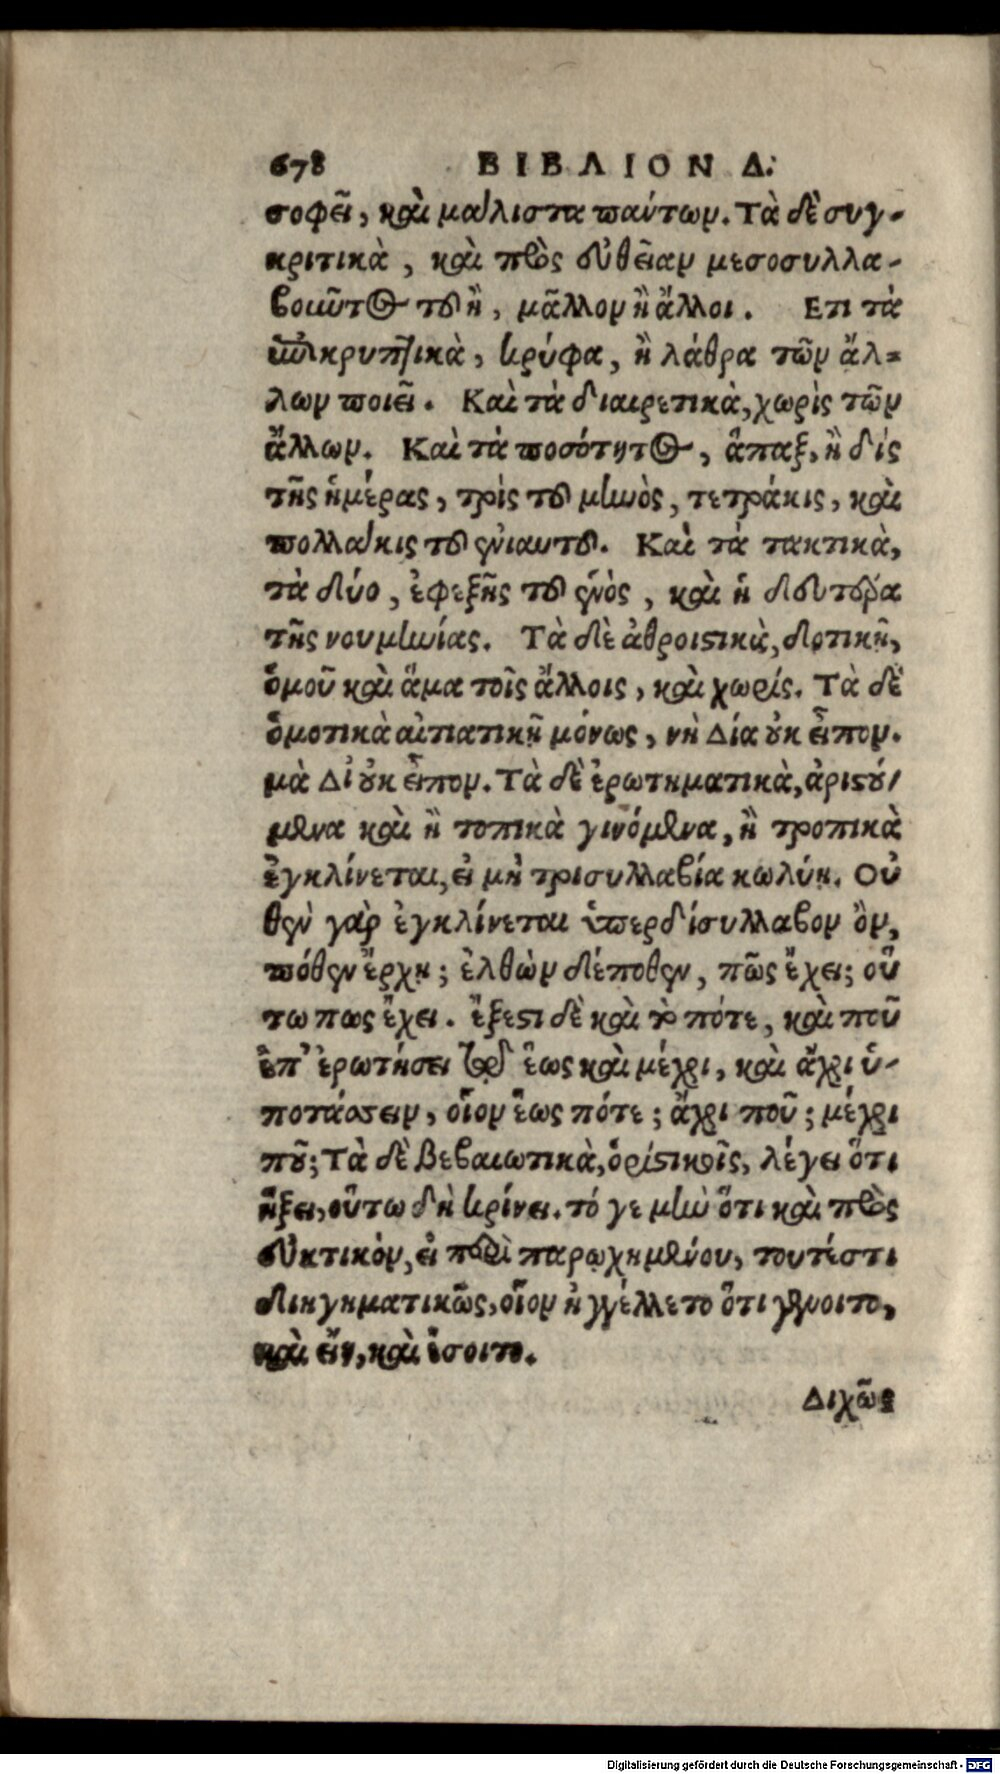 678 ΒΙΒΛΙΟΝ Δ.
σοφεῖ, καὶ μάλιστα πάντων. Τὰ δὲ συγ-
κριτικὰ, καὶ πρὸς εὐθεῖαν μεσοσυλλα-
βοῦντος τοῦ ἢ, μᾶλλον ἢ ἄλλοι. Ετι τὰ
ὑποκρυπτικὰ, κρύφα, ἢ λάθρα τῶν ἄλ-
λων ποιεῖ. Καὶ τὰ διαιρετικὰ, χωρὶς τῶν
ἄλλων. Καὶ τὰ ποσότητος, ἅπαξ, ἢ δίς
τῆς ἡμέρας, τρὶς τοῦ μηνὸς, τετράκις, καὶ
πολλάκις τοῦ ἐνιαυτοῦ. Καὶ τὰ τακτικὰ,
τὰ δύο, ἐφεξῆς τοῦ ἑνὸς, καὶ ἡ δευτέρα
τῆς νουμηνίας. Τὰ δὲ ἀθροιστικὰ, δοτικῇ,
ὁμοῦ καὶ ἅμα τοῖς ἄλλοις, καὶ χωρίς. Τὰ δὲ
ὀμοτικὰ αἰτιατικῇ μόνως, νὴ Δία οὐκ εἶπον.
μὰ Δί οὐκ εἶπον. Τὰ δὲ ἐρωτηματικὰ, ἀριστού-
μενα καὶ ἢ τοπικὰ γινόμενα, ἢ τροπικὰ
ἐγκλίνεται, εἰ μὴ τρισυλλαβία κωλύῃ. Οὐ
θὲν γὰρ ἐγκλίνεται ὑπερδίσυλλαβον ὂν,
πόθεν ἔρχῃ; ἐλθὼν δέποθεν, πῶς ἔχει; οὕ
τω πως ἔχει. ἔξεστι δὲ καὶ τὸ πότε, καὶ ποῦ
ἐπ' ἐρωτήσει τοῦ ἕως καὶ μέχρι, καὶ ἄχρι ὑ-
ποτάσσειν, οἷον ἕως πότε; ἄχρι ποῦ; μέχρι
ποῦ; Τὰ δὲ βεβαιωτικὰ, ὁριστικοῖς, λέγει ὅτι
ἥξει, οὕτω δὴ κρίνει. τό γε μὴν ὅτι καὶ πρὸς
εὐκτικὸν, εἰ περὶ παρῳχημένου, τουτέστι
διηγηματικῶς, οἷον ἠγγέλλετο ὅτι γένοιτο,
καὶ εἴη, καὶ ἔσοιτο.
Διχῶς
Digitalisierung gefördert durch die Deutsche Forschungsgemeinschaft - DFG